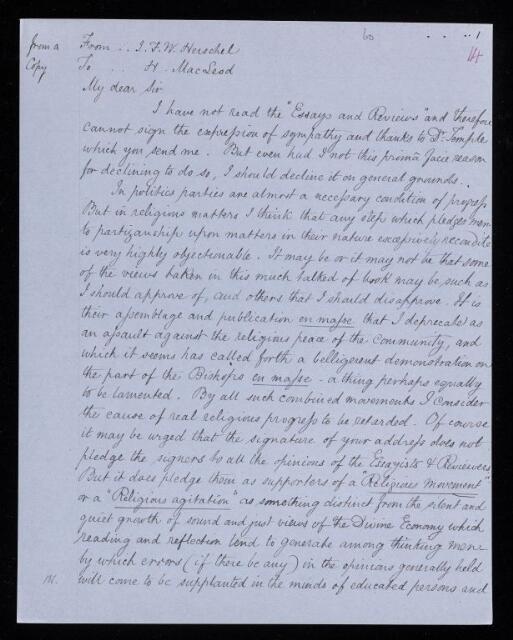 60
. . . . 1
14
from a
Copy
From .. J. F. W. Herschel
To .. H. MacLeod
My dear Sir
I have not read the "Essays and Reviews" and therefore
cannot sign the expression of sympathy and thanks to Dr. Temple
which you send me. But even had I not this primâ facie reason
for declining to do so, I should decline it on general grounds..
In politics parties are almost a necessary condition of progress
But in religious matters I think that any step which pledges men
to partizanship upon matters in their nature excessively recondite
is very highly objectionable. It may be or it may not be that some
of the views taken in this much talked of book may be such as
I should approve of, and others that I should disapprove. It is
their assemblage and publication en masse that I deprecate as
an assault against the religious peace of the community, and
which it seems has called forth a belligerent demonstration on
the part of the Bishops en masse - a thing perhaps equally
to be lamented. By all such combined movements I consider
the cause of real religious progress to be retarded. Of course
it may be urged that the signature of your address does not
pledge the signers to all the opinions of the Essayists & Reviewers
But it does pledge them as supporters of a "Religious movement"
or a "Religious agitation" as something distinct from the silent and
quiet growth of sound and just views of the Divine Economy which
reading and reflection tend to generate among thinking men
by which errors (if there be any) in the opinions generally held
will come to be supplanted in the minds of educated persons and